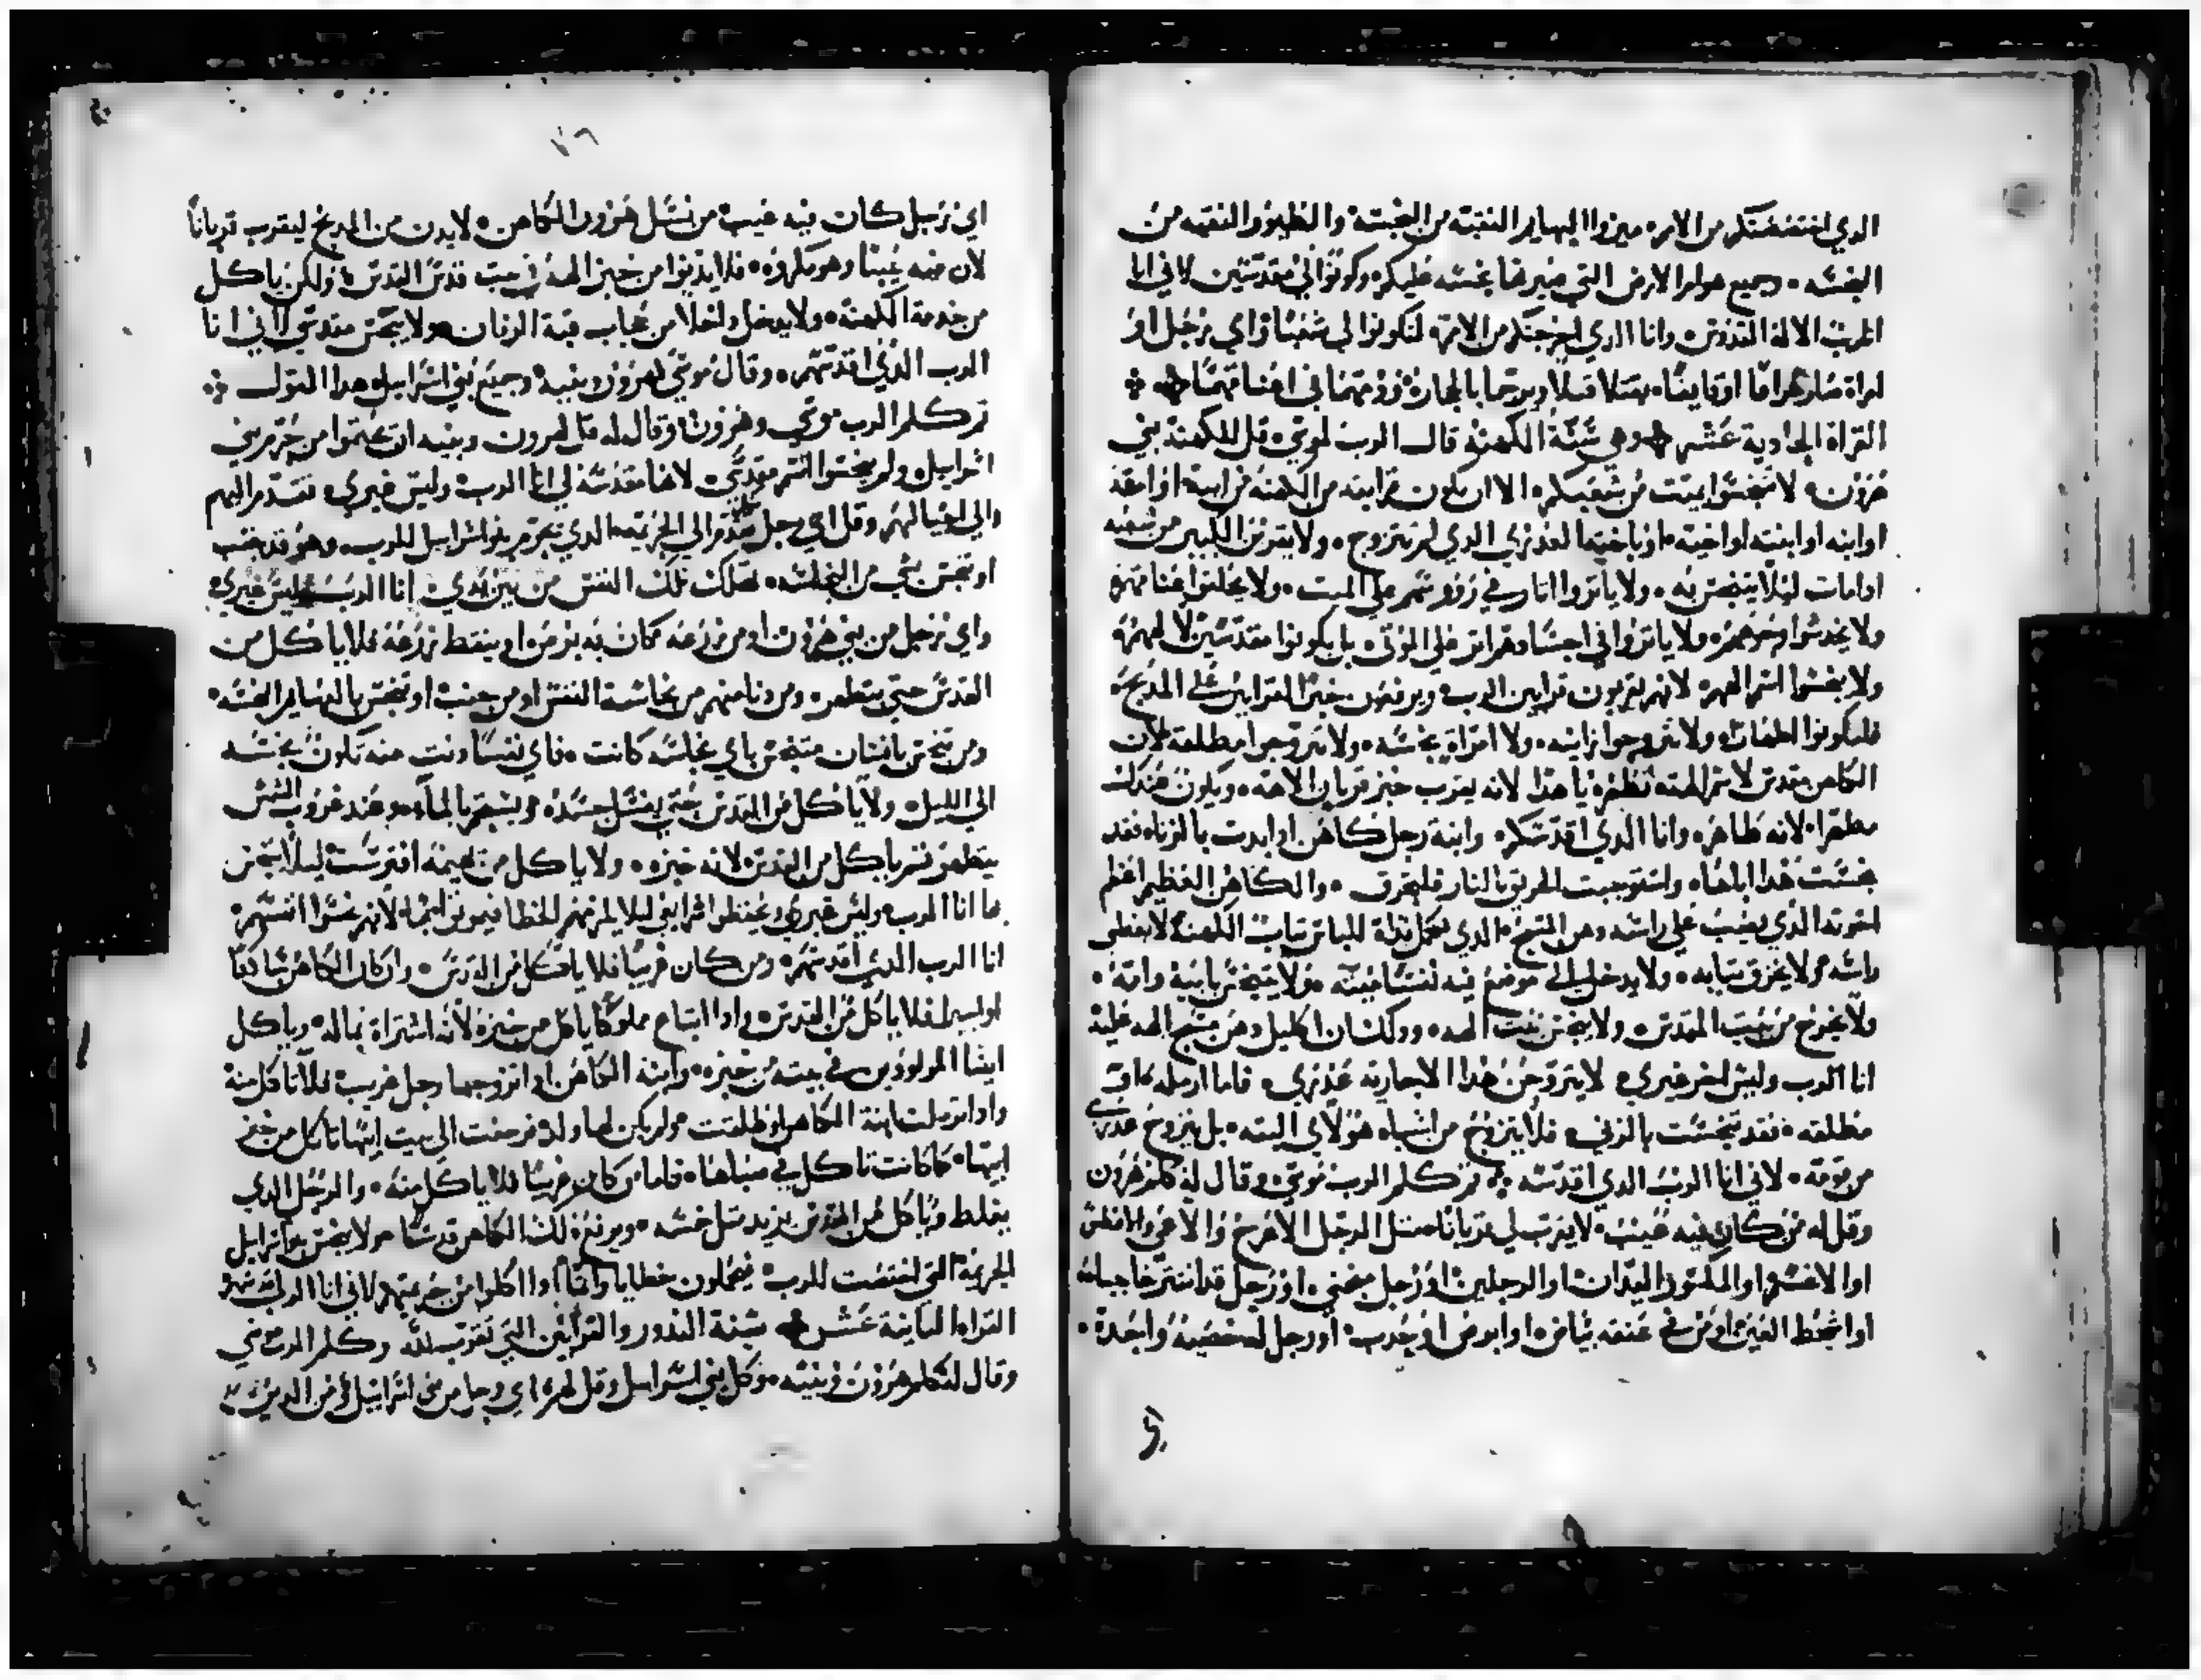 الدي اختصصتكم من الامم ميزوا البهايم النقيه من النجسة والطيور النقيه من
النجسه وجميع هوام الارض التي ميزتها نجسه عليكم وكونوا لي مقدسين لاني انا
الرب الاله القدوس وانا الدي اخرجتكم من الامم لتكونوا لي شعبًا واي رجل او
امراة صار عرافا او قايفًا يقتلا قتلا ويرجما بالحجاره ودمهما في اعناقهما
القراة الحادية عشر وهي سُنّة الكهنة قال الرب لموسي قل للكهنة بني
هرون لا تنجسوا بميت من شعبكم الا ان يكون قرابته من الكهنة من ابيه او امه
او ابنه او ابنته او اخيه او باخته العذري الدي لم تتزوج ولا
ادامات ليلا يتنجس به ولا ياتزروا اتازر في رووسهم علي الميت ولا يحلقوا عنا
ولا يخدشوا وجوههم ولا ياتزوا في اجسادهم اثر علي الموتي بل يكونوا مقدسين لالههم
ولا ينجسوا اسم الههم لانهم يقربون قرابين الرب ويرفعون خبز القرابين علي المدبح
فليكونوا اطهارًا ولا يتزوجوا زانيه ولا امراة نجسه ولا يتزوجوا مطلقة لان
الكاهن مقدس لاسم الهته تطهره يا هدا لانه يقرب خبز قربان الاهه ويكون عندك
مطهرا لانه طاهر وانا الدي اقدسكم وابنة رجل كاهن ادا بدت بالزناه فقد
نجست هدا اباها واستوجبت الحريق بالنار فلتحرق والكاهن العظيم اعظم
اخوته الدي يصب علي راسه دهن المسيح الدي للباس تياب الكهنة لا يغطي
راسه ولا يخرق تيابه ولا يدخل الي موضع فيه نفسًا ميته ولا يتنجس بابيه وامه
ولا يخرج من بيت المقدس ولا ينجس بيت الهه ودلك ان اكليل دهن مسيح الهه عليه
انا الرب وليس اخر غيري لا يتزوجن هدا الا بجاريه عذري فاما ارمله او
مطلقه فقد تنجست بالزني فلا يتزوج من اشباه هولاي البته بل يتزوج عذري
من قومه لاني انا الرب الدي اقدسه تم كلم الرب موسي وقال له كلم هرون
وقل له من كان فيه عيب لا يقرب لي قربانًا مثل الرجل الاعرج والاعمي والافطس
او الاخشم او المكسور اليدان او الرجلين او رجل منحني او رجل قد انتترت حاجباه
او اشحط العين او من في عينه بياض او ابرص او جدب او رجل له خصية واحدة
اي رجل كان فيه عيب من نسل هرون الكاهن لا يدن من المدبح ليقرب قربانًا
لان فيه عيبًا وهو مكروه فلا يدنوا من خبز الهه في بيت قدس القدس ولكن ياكل
من خدمة الكهنه ولا يدخل داخلا من حجاب قبة الزمان ولا ينجس مقدسي لاني انا
الرب الدي اقدسهم وقال موسي لهرون وبنيه وجميع بني اسراييل هدا القول
تم كلم الرب موسي وهرون وقال له قل لهرون وبنيه ان يحتموا من حُرم بني
اسراييل ولم ينجسوا اسم مقدسي لانها مقدسة لي انا الرب وليس غيري تقدم اليهم
والي اعيالهم وقل اي رجل تقدم الي الحُرمه الدي يحرم بنو اسراييل للرب وهو قد جنب
او تنجس بشي من النجاسه تهلك تلك النفس من بين يدي انا الرب وليس غيري
واي رجل من بني هرون او من زرعه كان به برص او ينقط زرعه فلا ياكل من
القدس حتي يتطهر ومن دنا منهم من نجاسة النفس او من جنب او تنجس بالبهايم النجسه
ومن تنجس بانسان متنجس باي نجاسه كانت فاي نفسًا دنت منه تكون نجسه
الي الليل ولا ياكل من القدس حتي يغسل جسده ويستحم بالمآء وعند غروب الشمس
يتطهر تم ياكل من القدس لانه خبزه ولا ياكل من بهيمة افترست ليلا يتنجس
بها انا الرب وليس غيري ويحفظوا شرايعي ليلا يلزمهم الخطا فيموتوا لانهم نجسوا انفسهم
انا الرب الدي اقدسهم ومن كان غريبًا فلا ياكل من القدس وان كان الكاهن ساكنًا
او اجير فلا ياكل من القدس وادا ابتاع مملوكًا ياكل من خبزه لانه اشتراه بماله وياكل
ايضًا المولودين في بيته من خبزه وابنة الكاهن ادا تزوجها رجل غريب فلا تاكل منه
وادا ترملت ابنة الكاهن او طلقت ولم يكن لها ولد ورجعت الي بيت ابيها تاكل من خبز
ابيها كما كانت تاكل في صباها فاما من كان غريبًا فلا ياكل منه والرجل الدي
يغلط وياكل من القدس يزيد مثل خمسه ويرفع دلك الكاهن قدسًا ولا ينجس بنو اسراييل
الحرمة التي اختصت للرب فيحملون خطايا واثمًا ادا اكلوا من حُرمتهم لاني انا الرب اقدسهم
القراه التانية عشر سُنة الندور والقرابين التي تقرب لله وكلم الرب موسي
وقال له كلم هرون وبنيه وكل بني اسراييل وقل لهم اي رجل من بني اسراييل او من الدين